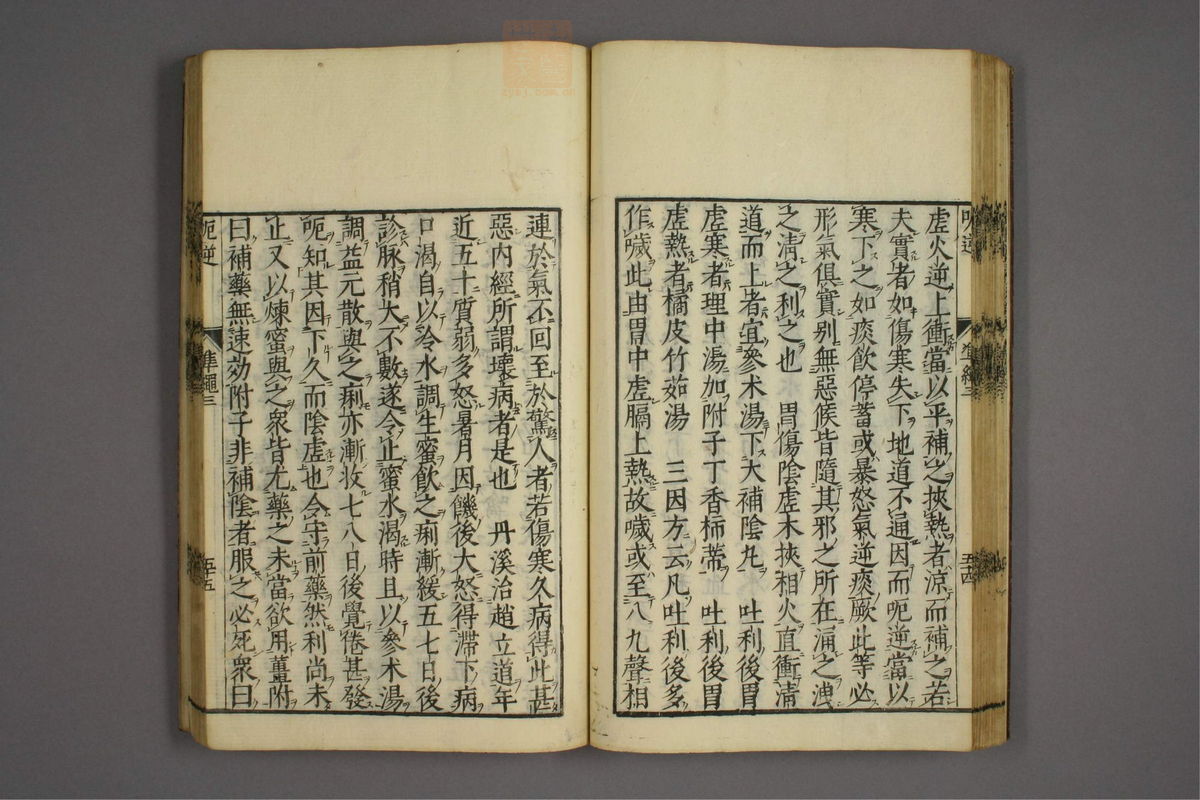 呃逆
準繩三
五十四
虛火逆上衝當以平補之挾熱者涼而補之若
夫實者如傷寒失下地道不通因而呃逆當以
寒下之如痰飲停蓄或暴怒氣逆痰厥此等必
形氣俱實别無惡候皆隨其邪之所在涌之洩
之清之利之也　胃傷陰虛木挾相火直衝清
道而上者宜參术湯下大補陰丸　吐利後胃
虛寒者理中湯加附子丁香柿蒂　吐利後胃
虛熱者橘皮竹茹湯　三因方云凡吐利後多
作噦此由胃中虛膈上熱故噦或至八九聲相
連於氣不回至於驚人者若傷寒久病得此甚
惡內經所謂壞病者是也　丹溪治趙立道年
近五十質弱多怒暑月因饑後大怒得滯下病
口渴自以冷水調生蜜飲之痢漸緩五七日後
診脉稍大不數遂令止蜜水渴時且以參术湯
調益元散與之痢亦漸收七八日後覺倦甚發
呃知其因下久而陰虛也令守前藥然利尚未
止又以煉蜜與之衆皆尤藥之未當欲用薑附
曰補藥無速効附子非補陰者服之必死衆曰
呃逆
準繩三
五十五
zysj.com.cn